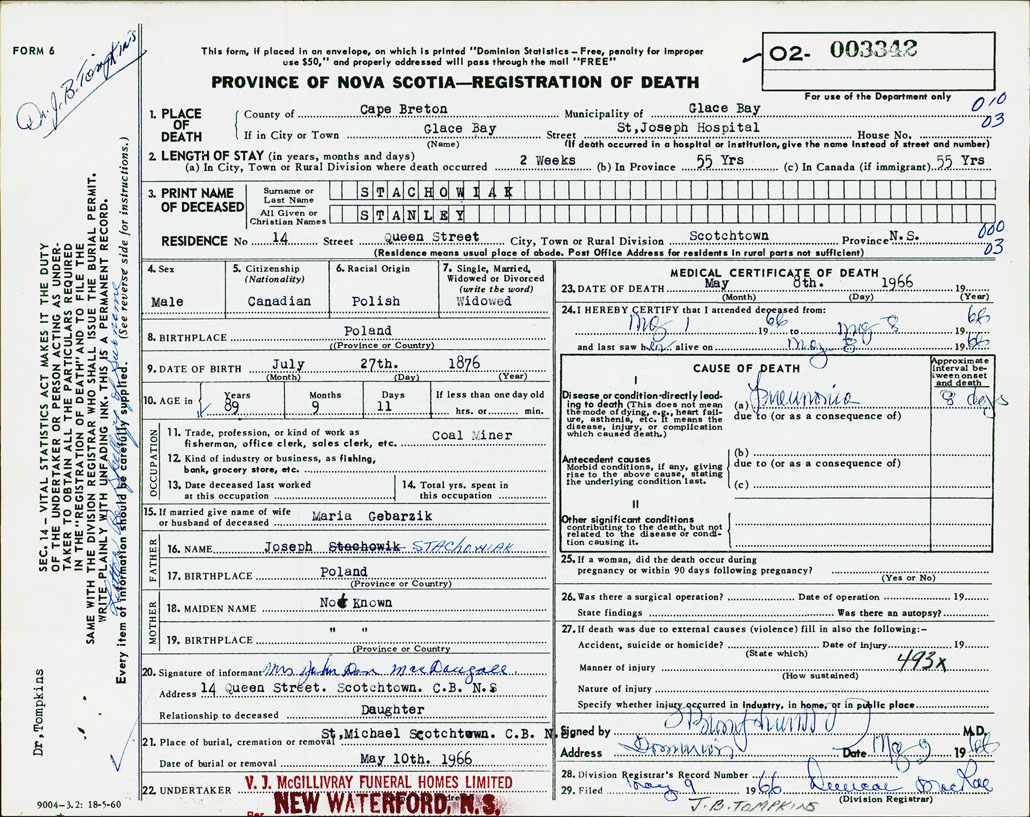 FORM 6
Dr. J. B. Tompkins
This form, if placed in an envelope, on which is printed "Dominion Statistics – Free, penalty for improper
use $50," and properly addressed will pass through the mail "FREE"
PROVINCE OF NOVA SCOTIA—REGISTRATION OF DEATH
02- 003342
For use of the Department only
010
03
1. PLACE OF DEATH
County of Cape Breton Municipality of Glace Bay
If in City or Town Glace Bay Street St,Joseph Hospital House No.
(Name) (If death occurred in a hospital or institution, give the name instead of street and number)
2. LENGTH OF STAY (in years, months and days)
(a) In City, Town or Rural Division where death occurred 2 Weeks (b) In Province 55 Yrs (c) In Canada (if immigrant) 55 Yrs
3. PRINT NAME OF DECEASED
Surname or Last Name STACHOWIAK
All Given or Christian Names STANLEY
000
03
RESIDENCE No 14 Street Queen Street City, Town or Rural Division Scotchtown Province N.S.
(Residence means usual place of abode. Post Office Address for residents in rural parts not sufficient)
4. Sex
Male
5. Citizenship (Nationality)
Canadian
6. Racial Origin
Polish
7. Single, Married, Widowed or Divorced (write the word)
Widowed
8. BIRTHPLACE Poland
(Province or Country)
9. DATE OF BIRTH July 27th. 1876
(Month) (Day) (Year)
10. AGE in Years Months Days If less than one day old
89 9 11 hrs. or min.
OCCUPATION
11. Trade, profession, or kind of work as
fisherman, office clerk, sales clerk, etc. Coal Miner
12. Kind of industry or business, as fishing,
bank, grocery store, etc.
13. Date deceased last worked
at this occupation
14. Total yrs. spent in
this occupation
15. If married give name of wife
or husband of deceased Maria Gebarzik
FATHER
16. NAME Joseph Stachowik STACHOWIAK
17. BIRTHPLACE Poland
(Province or Country)
MOTHER
18. MAIDEN NAME Not Known
19. BIRTHPLACE " "
(Province or Country)
20. Signature of informant Mrs John Dan MacDougall
Address 14 Queen Street. Scotchtown. C.B. N.S
Relationship to deceased Daughter
21. Place of burial, cremation or removal St,Michael Scotchtown. C.B. N.S
Date of burial or removal May 10th. 1966
22. UNDERTAKER V. J. McGILLIVRAY FUNERAL HOMES LIMITED
NEW WATERFORD, N. S.
Per
9004-3.2: 18-5-60
MEDICAL CERTIFICATE OF DEATH
23. DATE OF DEATH May 8th. 1966 19
(Month) (Day) (Year)
24. I HEREBY CERTIFY that I attended deceased from:
May 1 1966 to May 8 66
and last saw him alive on May 8 1966
CAUSE OF DEATH
Approximate interval between onset and death
I
Disease or condition directly leading to death (This does not mean the mode of dying, e.g., heart failure, asthenia, etc. It means the disease, injury, or complication which caused death.)
(a) Pneumonia 8 days
due to (or as a consequence of)
Antecedent causes
Morbid conditions, if any, giving rise to the above cause, stating the underlying condition last.
(b)
due to (or as a consequence of)
(c)
II
Other significant conditions
contributing to the death, but not related to the disease or condition causing it.
25. If a woman, did the death occur during
pregnancy or within 90 days following pregnancy?
(Yes or No)
26. Was there a surgical operation? Date of operation 19
State findings Was there an autopsy?
27. If death was due to external causes (violence) fill in also the following:–
Accident, suicide or homicide? Date of injury 19
(State which)
Manner of injury 493x
(How sustained)
Nature of injury
Specify whether injury occurred in industry, in home, or in public place
Signed by M.D.
Address Dominion Date May 9 1966
28. Division Registrar's Record Number
29. Filed May 9 1966 Duncan MacRae
(Division Registrar)
J.B. TOMPKINS
SEC. 14 – VITAL STATISTICS ACT MAKES IT THE DUTY
OF THE UNDERTAKER OR PERSON ACTING AS UNDER-
TAKER TO OBTAIN ALL THE PARTICULARS REQUIRED
IN THE "REGISTRATION OF DEATH" AND TO FILE THE
SAME WITH THE DIVISION REGISTRAR WHO SHALL ISSUE THE BURIAL PERMIT.
WRITE PLAINLY WITH UNFADING INK. THIS IS A PERMANENT RECORD.
Every item of information should be carefully supplied. (See reverse side for instructions.)
Dr,Tompkins